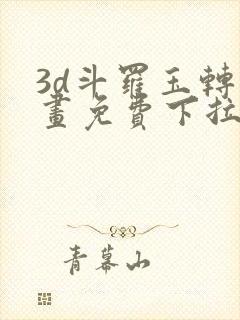 3d斗羅玉轉
畫免費下拉
青幕山